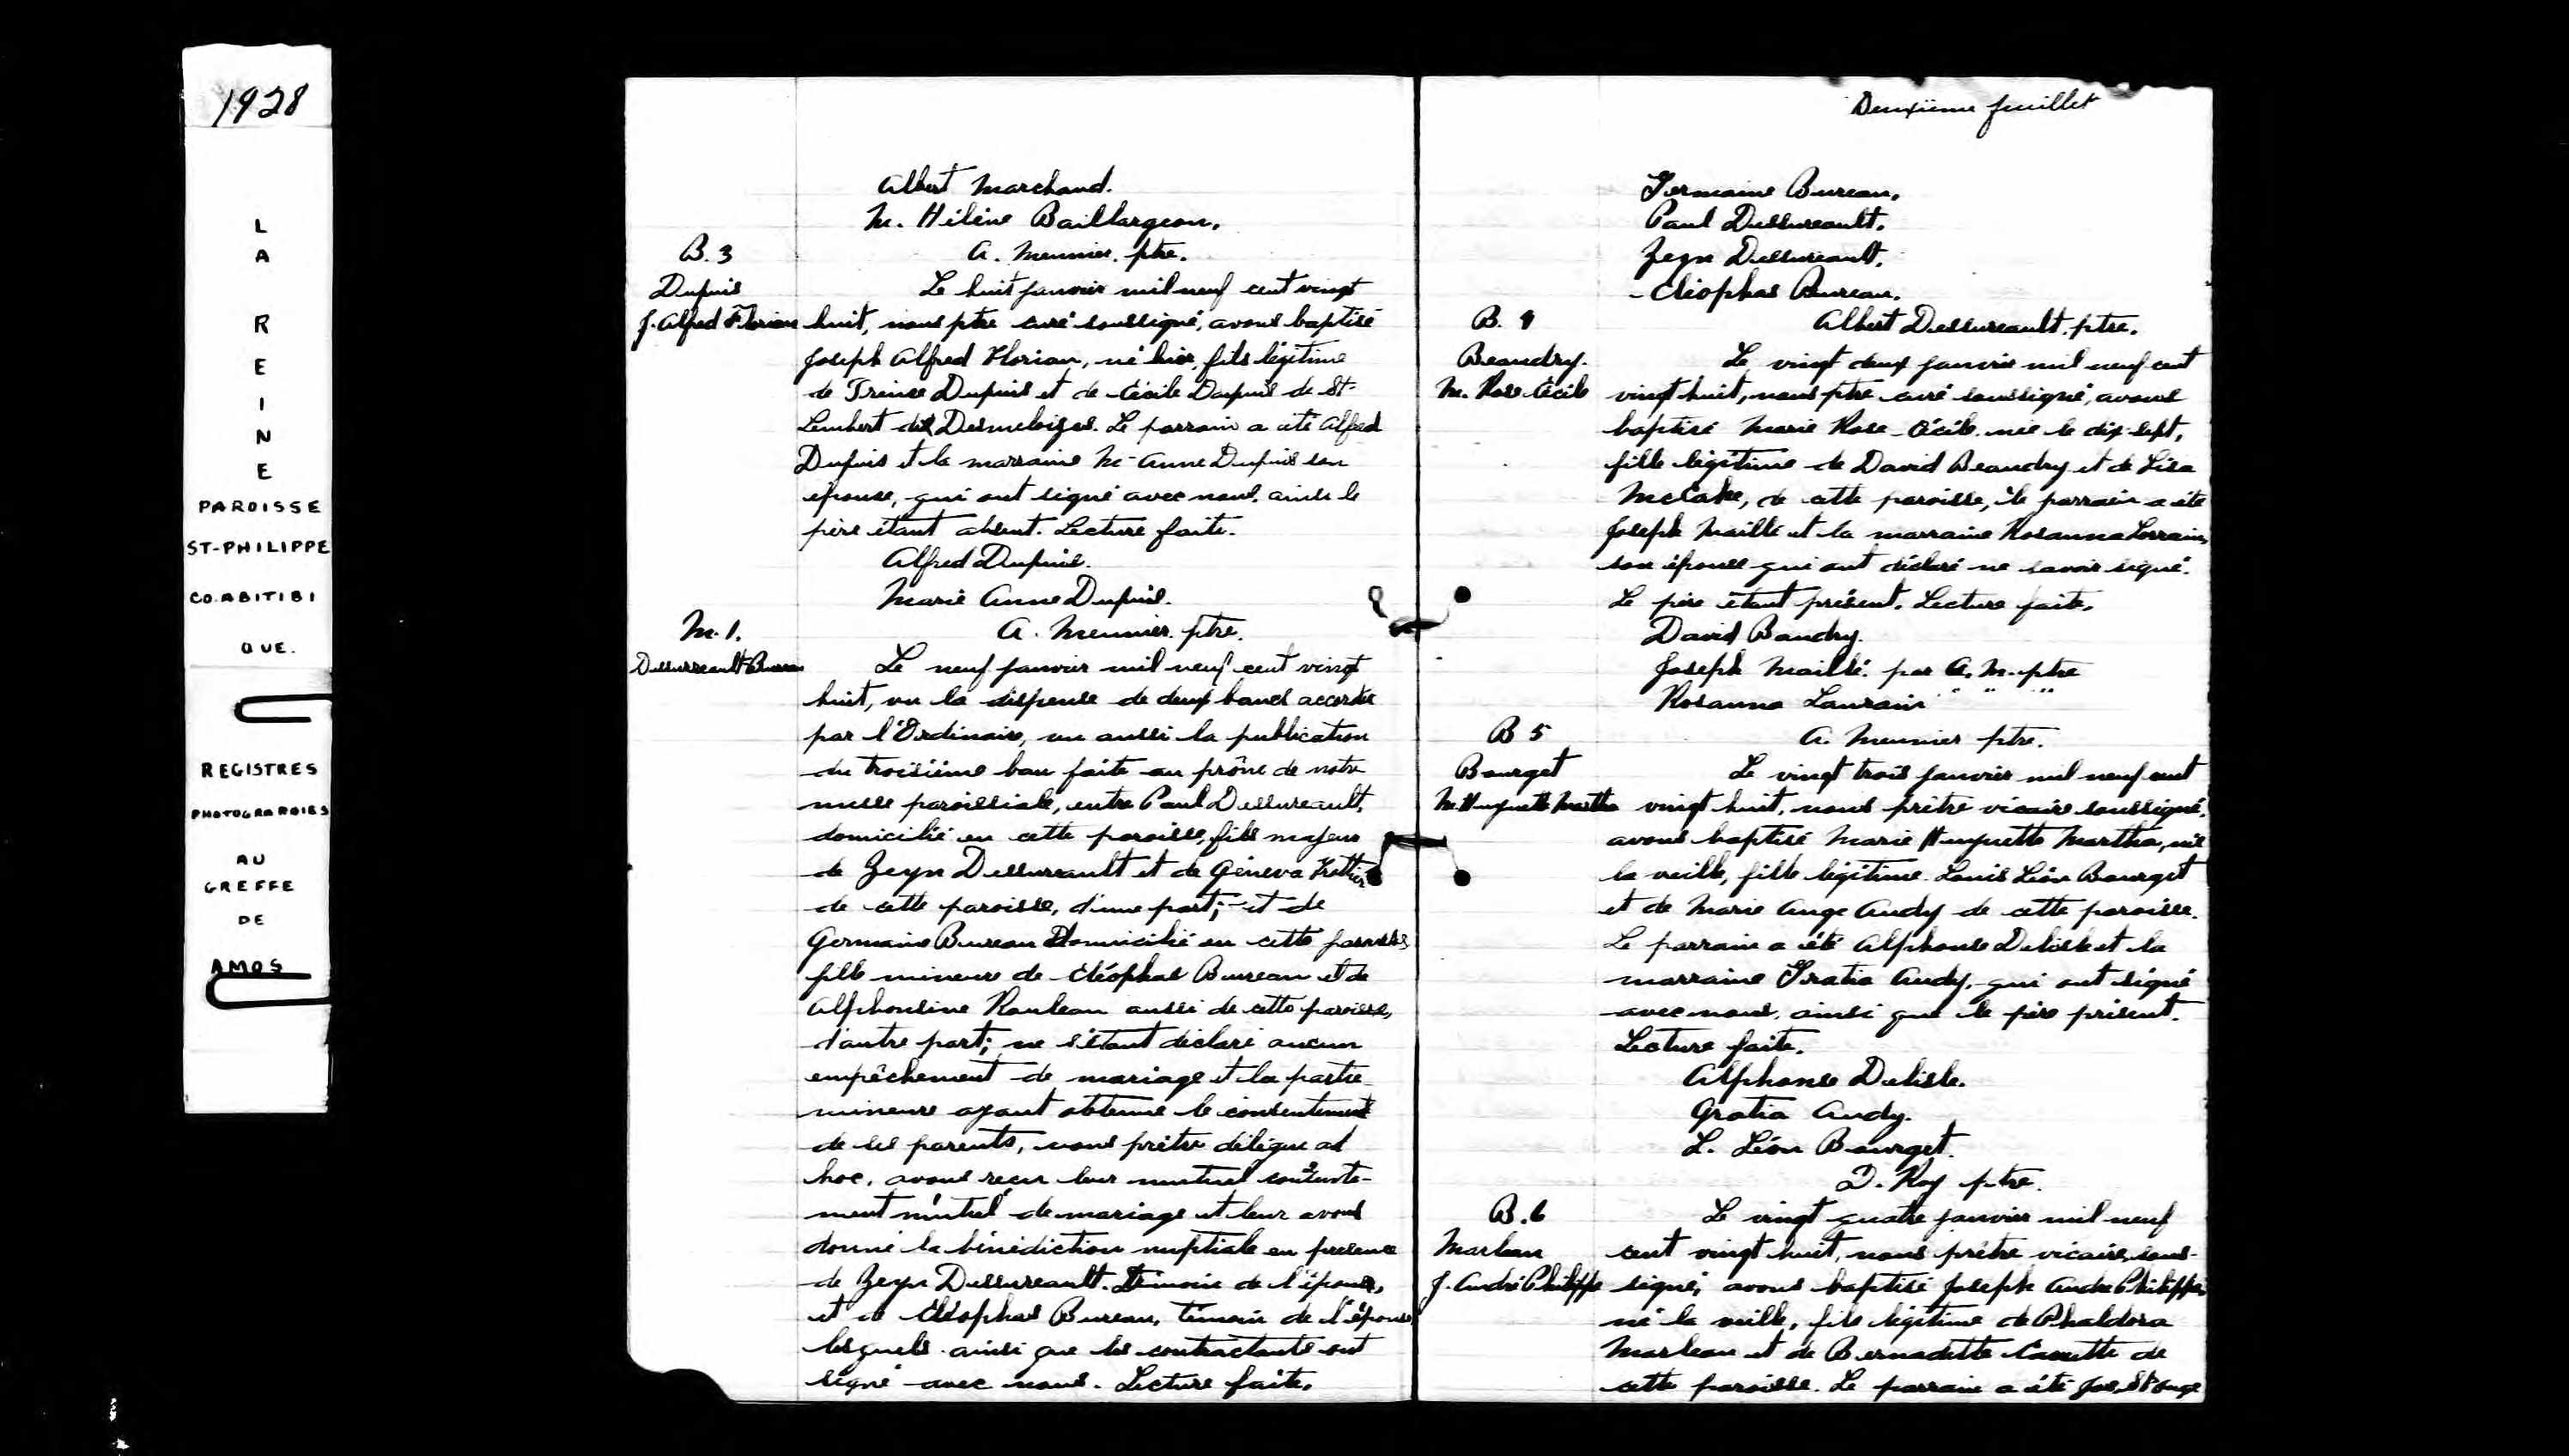 1928
L
A
R
E
I
N
E
PAROISSE
ST-PHILIPPE
CO. ABITIBI
QUE.
REGISTRES
PHOTOGRAPHIES
AU
GREFFE
DE
AMOS
Albert Marchand.
M. Hélène Baillargeon.
B. 3
A. Meunier, ptre.
Dupuis
Le huit janvier mil neuf cent vingt
J. Alfred Florian
huit, nous ptre curé soussigné, avons baptisé
Joseph Alfred Florian, né hier, fils légitime
de Dupuis et de Cécile Dupuis de St-
Lambert de Desmeloizes. Le parrain a été Alfred
Dupuis et la marraine M-Anne Dupuis son
épouse, qui ont signé avec nous, le
père étant absent. Lecture faite.
Alfred Dupuis.
Marie Anne Dupuis.
M. 1.
A. Meunier. ptre.
Dessureault Bureau
Le neuf janvier mil neuf cent vingt
huit, vu la dispense de deux bans accordée
par l'Ordinaire, vu aussi la publication
du troisième ban faite au prône de notre
messe paroissiale, entre Paul Dessureault,
domicilié en cette paroisse, fils majeur
de Zeyn Dessureault et de Géneva
de cette paroisse, d'une part; et de
Germaine Bureau domicilié en cette paroisse
fille mineure de Cléophas Bureau et de
Alphonsine Rouleau aussi de cette paroisse,
d'autre part; ne s'étant déclaré aucun
empêchement de mariage et la partie
mineure ayant obtenue le consentement
de ses parents, nous prêtre délégué ad
hoc, avons reçu leur mutuel
de mariage et leur avons
donné la bénédiction nuptiale en présence
de Zeyn Dessureault. témoin de l'époux,
et de Cléophas Bureau, témoin de l'épouse
lesquels ainsi que les contractants ont
signé avec nous. Lecture faite.
Deuxième feuillet
Germaine Bureau.
Paul Dessureault.
Zeyn Dessureault.
Cléophas Bureau.
B. 4
Albert Dessureault, ptre.
Beaudry.
Le vingt deux janvier mil neuf cent
M. Rose Cécile
vingt huit, nous ptre curé soussigné, avons
baptisé Marie Rose-Cécile née le dix sept,
fille légitime de David Beaudry et de Lisa
McCabe, de cette paroisse, le parrain a été
Joseph Maillé et la marraine Rosanna Lorrain,
son épouse qui ont déclaré ne savoir signé.
Le père étant présent. Lecture faite.
David Baudry.
Joseph Maillé. par A. M. ptre
Rosanna Laurain " " "
B 5
A. Meunier ptre.
Bourget
Le vingt trois janvier mil neuf cent
M. Huguette Martha
vingt huit, nous prêtre vicaire soussigné,
avons baptisé Marie Huguette Martha, née
la veille, fille légitime Louis Léon Bourget
et de Marie Ange Audy de cette paroisse.
Le parrain a été Alphonse Delisle et la
marraine Gratia Audy, qui ont signé
avec nous, ainsi que le père présent.
Lecture faite.
Alphonse Delisle.
Gratia Audy.
L. Léon Bourget.
D. Roy ptre.
B. 6
Le vingt quatre janvier mil neuf
Marleau
cent vingt huit, nous prêtre vicaire sous-
J. André Philippe
signé, avons baptisé Joseph André Philippe,
né la veille, fils légitime de Phaldora
Marleau et de Bernadette de
cette paroisse. Le parrain a été Jos. St-Onge